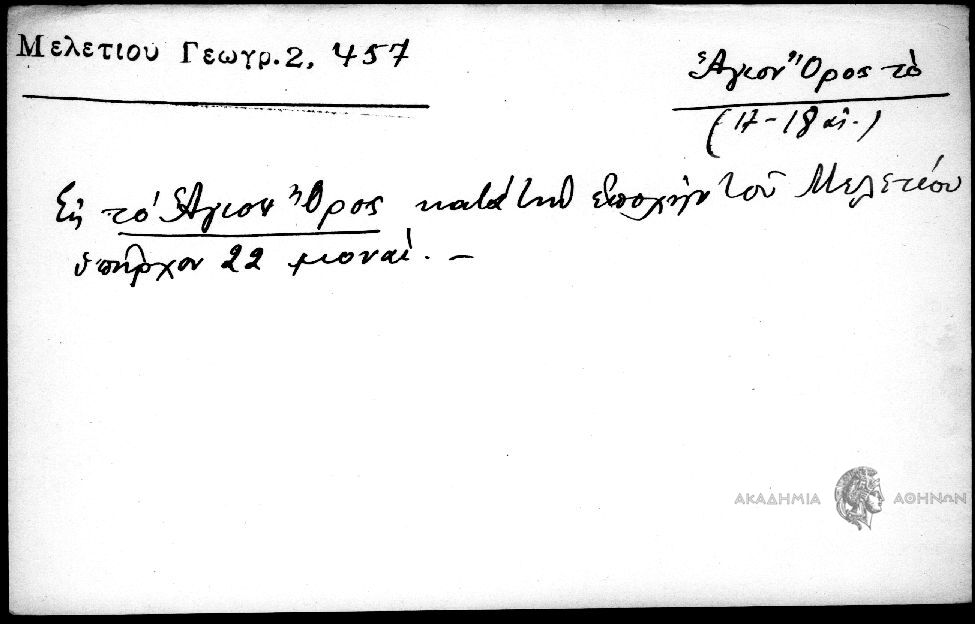 Μελετιου Γεωγρ. 2, 457
Ἅγιον Ὄρος τὸ
(17-18 αἰ.)
Εἰς τὸ Ἅγιον Ὄρος κατὰ τὴν ἐποχὴν τοῦ Μελετίου
ὑπῆρχον 22 μοναί. –
ΑΚΑΔΗΜΙΑ ΑΘΗΝΩΝ